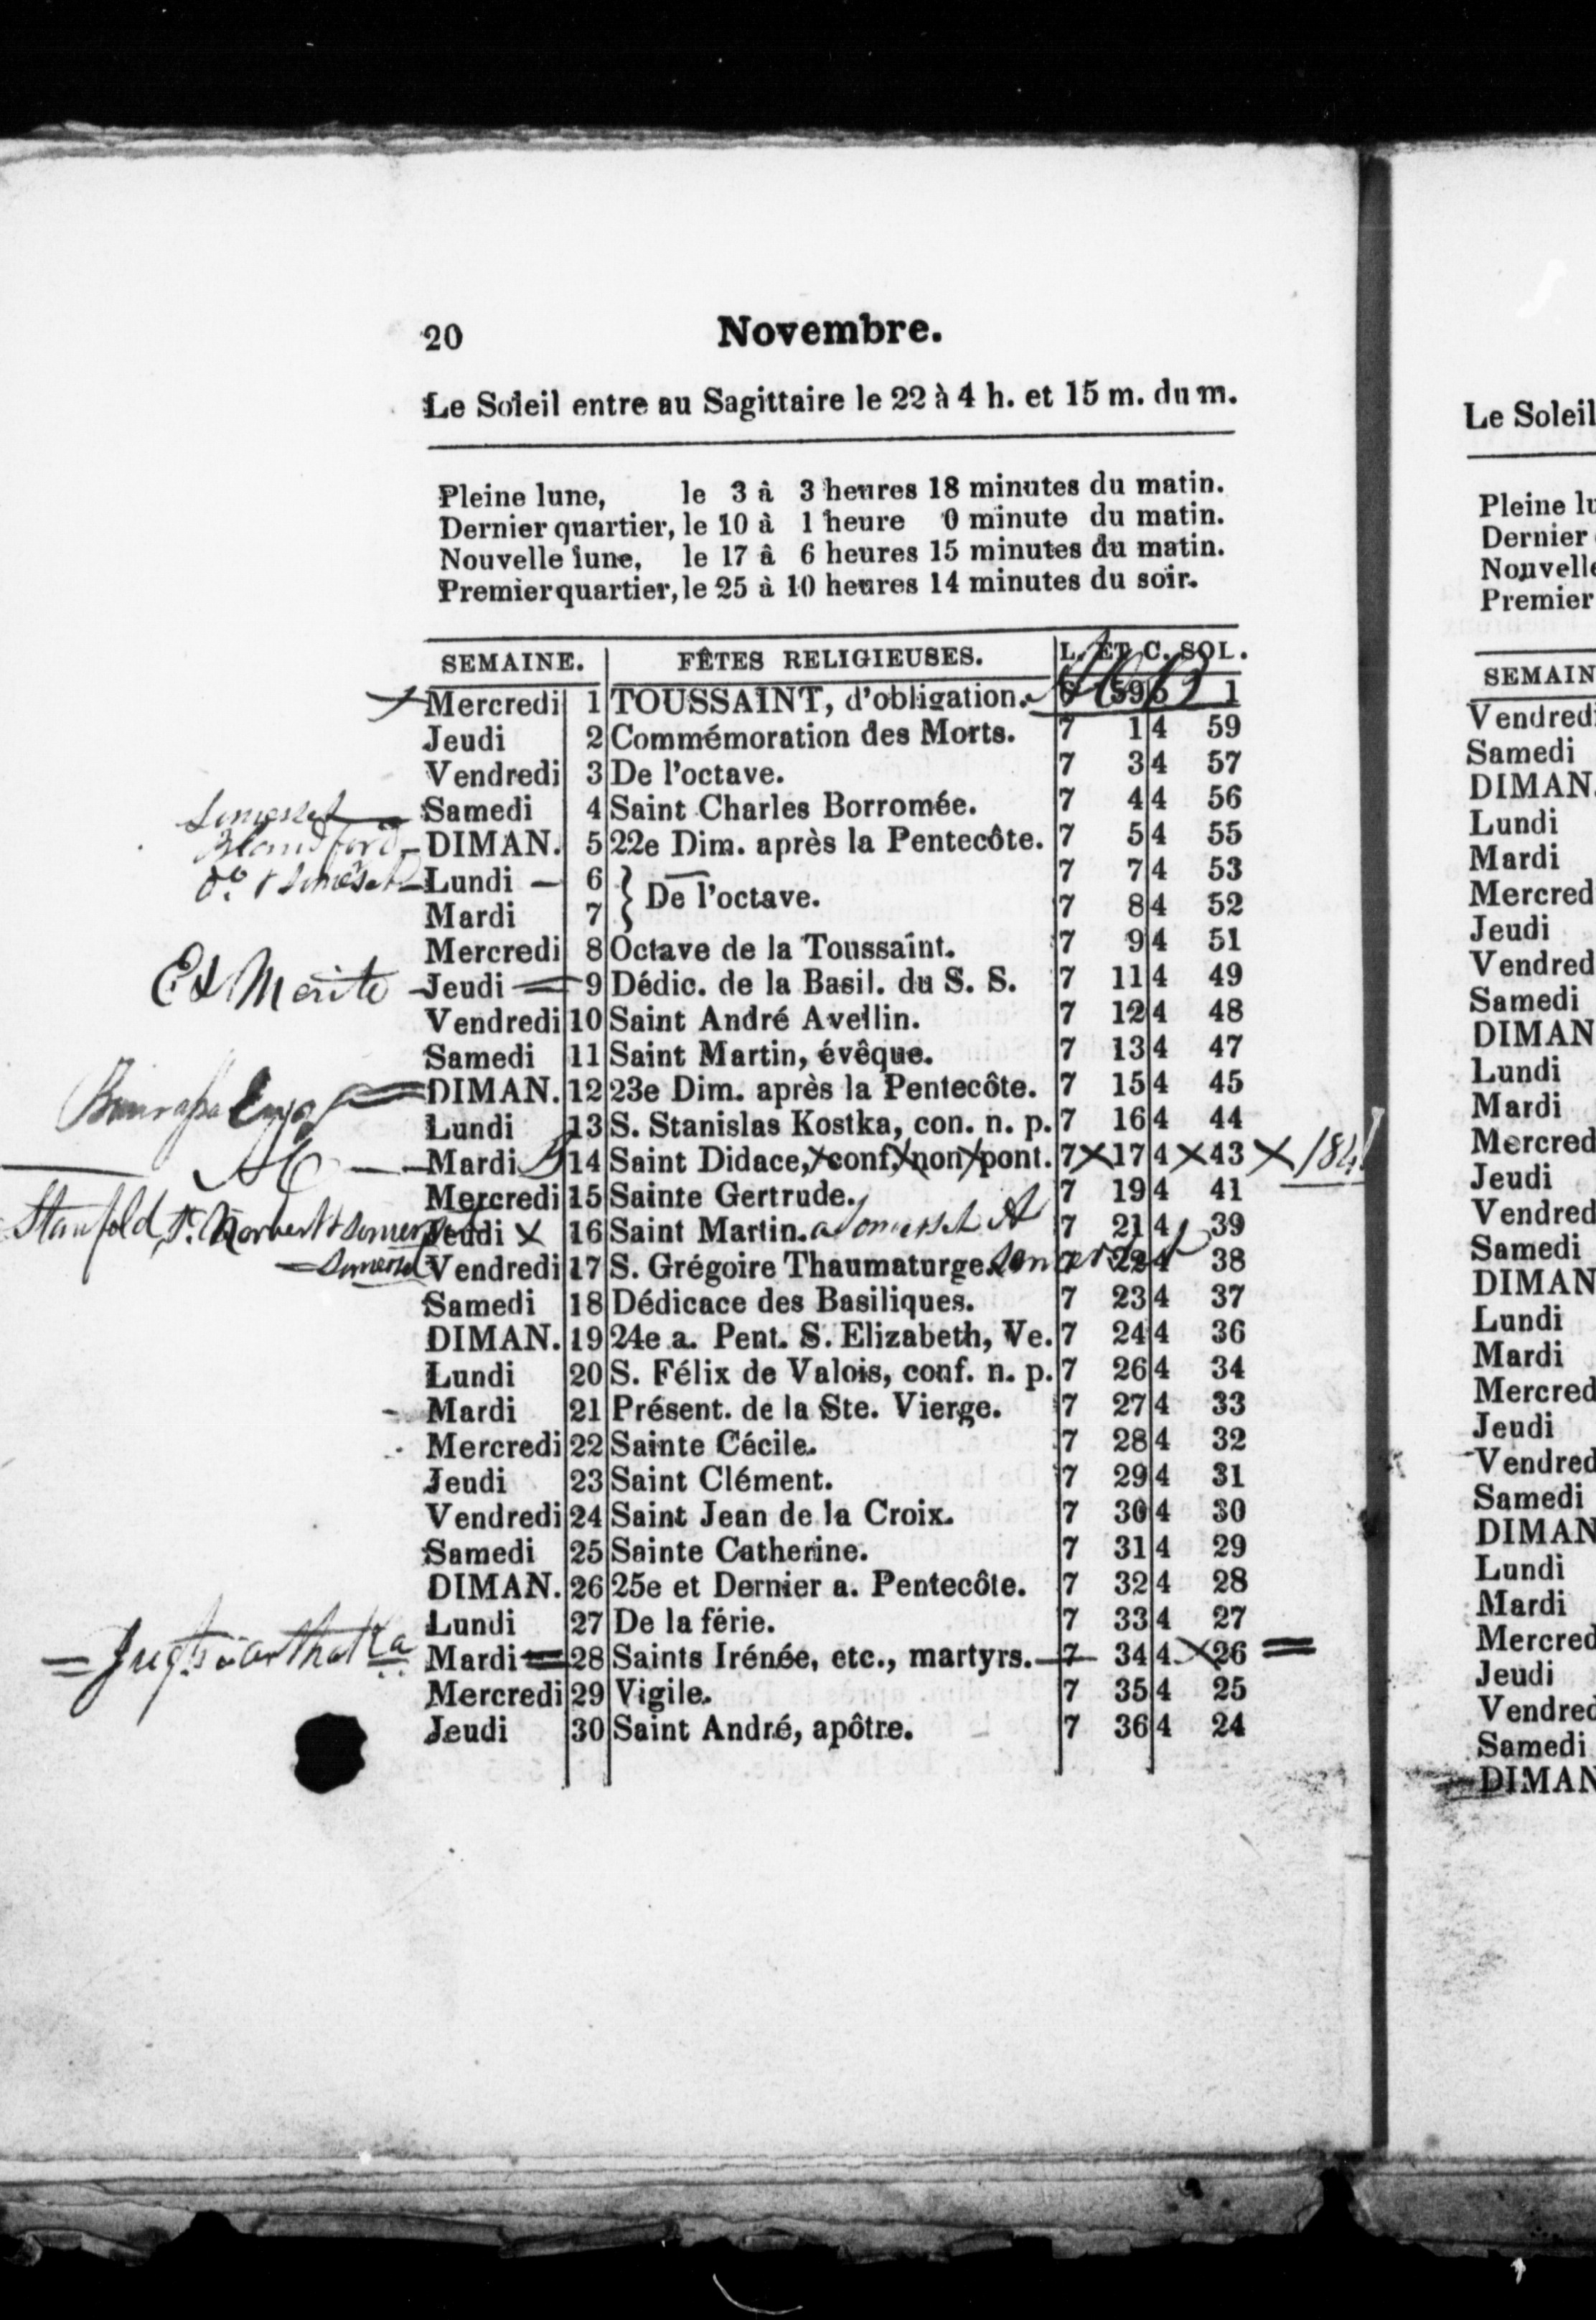 20 Novembre.
Le Soleil entre au Sagittaire le 22 à 4 h. et 15 m. du m.
Pleine lune, le 3 à 3 heures 18 minutes du matin.
Dernier quartier, le 10 à 1 heure 0 minute du matin.
Nouvelle lune, le 17 à 6 heures 15 minutes du matin.
Premier quartier, le 25 à 10 heures 14 minutes du soir.
SEMAINE. FÊTES RELIGIEUSES. L. ET C. SOL.
Mercredi 1 TOUSSAINT, d'obligation. 59 1
Jeudi 2 Commémoration des Morts. 7 1 4 59
Vendredi 3 De l'octave. 7 3 4 57
Somerset Samedi 4 Saint Charles Borromée. 7 4 4 56
Blandford DIMAN. 5 22e Dim. après la Pentecôte. 7 5 4 55
do. & Somerset Lundi 6 7 7 4 53
De l'octave.
Mardi 7 7 8 4 52
Mercredi 8 Octave de la Toussaint. 7 9 4 51
Jeudi 9 Dédic. de la Basil. du S. S. 7 11 4 49
Vendredi 10 Saint André Avellin. 7 12 4 48
Samedi 11 Saint Martin, évêque. 7 13 4 47
DIMAN. 12 23e Dim. après la Pentecôte. 7 15 4 45
Lundi 13 S. Stanislas Kostka, con. n. p. 7 16 4 44
Mardi 14 Saint Didace, conf, non pont. 7 17 4 43
Mercredi 15 Sainte Gertrude. 7 19 4 41
Stanfold, St. Norbert & Somerset Jeudi x 16 Saint Martin. a Somerset 7 21 4 39
Somerset Vendredi 17 S. Grégoire Thaumaturge. Somerset 7 22 4 38
Samedi 18 Dédicace des Basiliques. 7 23 4 37
DIMAN. 19 24e a. Pent. S. Elizabeth, Ve. 7 24 4 36
Lundi 20 S. Félix de Valois, conf. n. p. 7 26 4 34
Mardi 21 Présent. de la Ste. Vierge. 7 27 4 33
Mercredi 22 Sainte Cécile. 7 28 4 32
Jeudi 23 Saint Clément. 7 29 4 31
Vendredi 24 Saint Jean de la Croix. 7 30 4 30
Samedi 25 Sainte Catherine. 7 31 4 29
DIMAN. 26 25e et Dernier a. Pentecôte. 7 32 4 28
Lundi 27 De la férie. 7 33 4 27
Mardi 28 Saints Irénée, etc., martyrs. 7 34 4 26
Mercredi 29 Vigile. 7 35 4 25
Jeudi 30 Saint André, apôtre. 7 36 4 24
Le Soleil
Pleine lu
Dernier
Nouvelle
Premier
SEMAIN
Vendredi
Samedi
DIMAN.
Lundi
Mardi
Mercred
Jeudi
Vendred
Samedi
DIMAN
Lundi
Mardi
Mercred
Jeudi
Vendred
Samedi
DIMAN
Lundi
Mardi
Mercred
Jeudi
Vendred
Samedi
DIMAN
Lundi
Mardi
Mercred
Jeudi
Vendred
Samedi
DIMAN